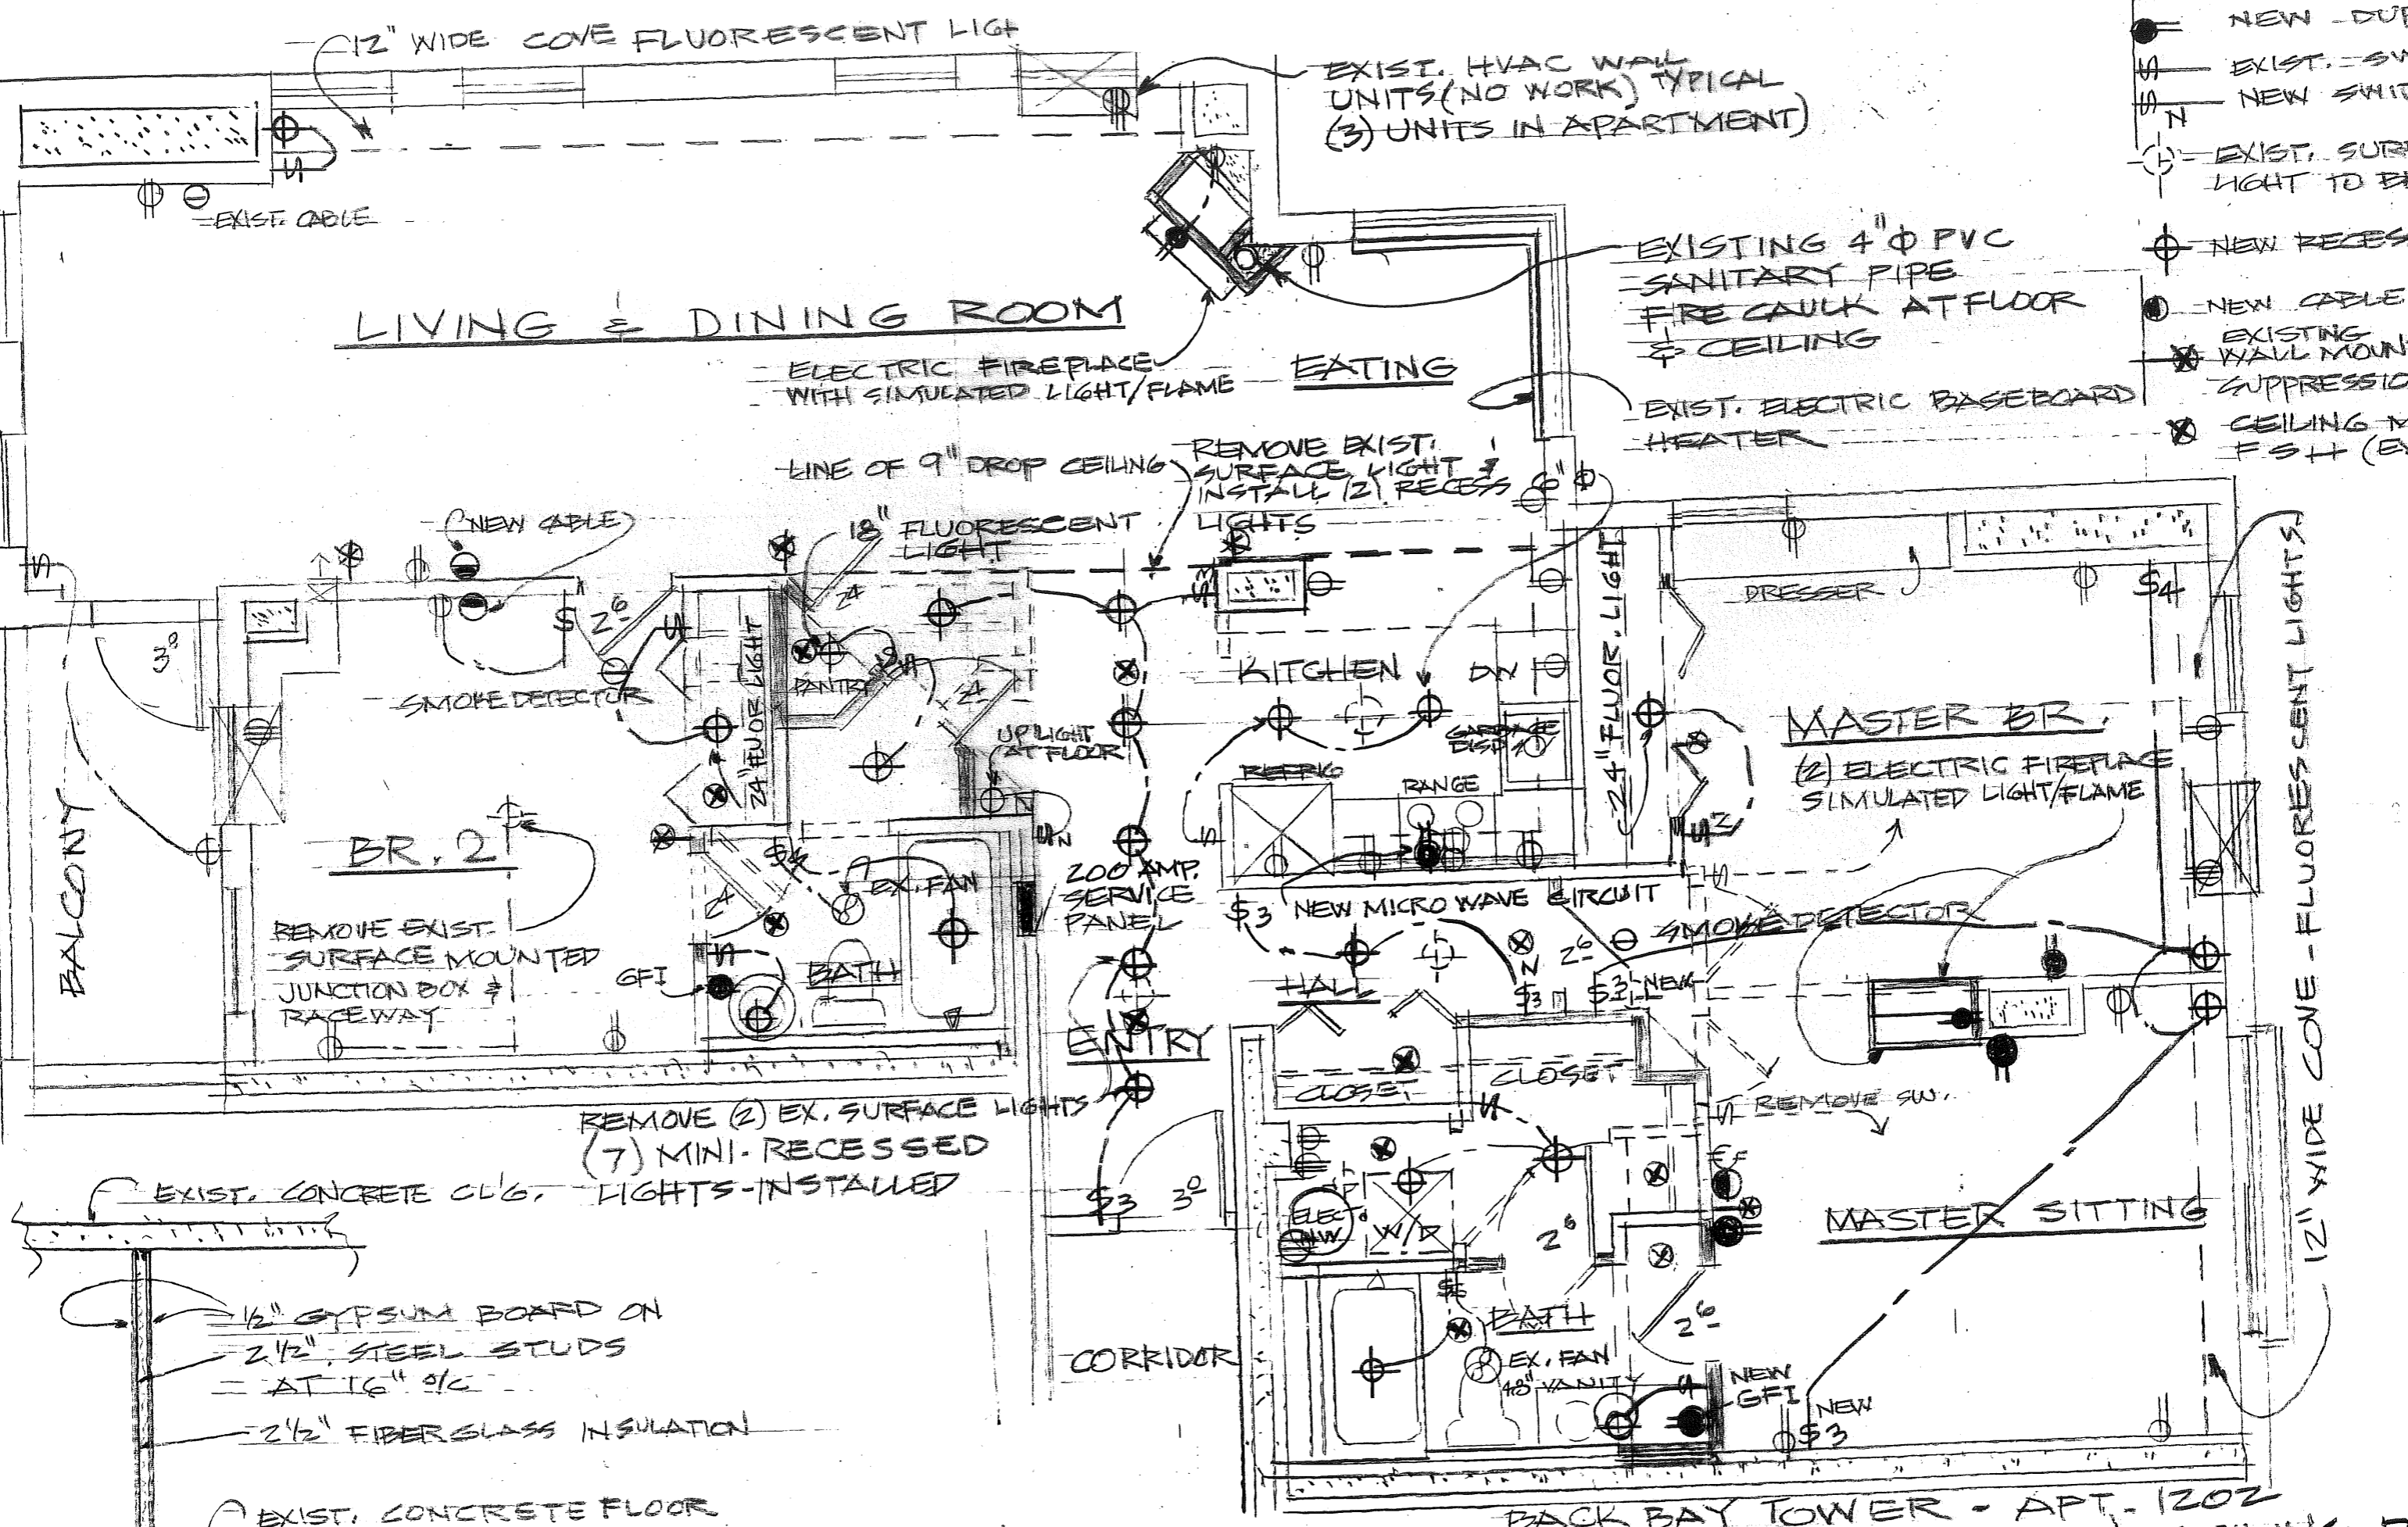 12" WIDE COVE FLUORESCENT LIGH
EXIST. HVAC WALL
UNITS (NO WORK) TYPICAL
(3) UNITS IN APARTMENT)
NEW DUP
EXIST. SW
NEW SWIT
N
EXIST. SURF
LIGHT TO B
NEW RECES
NEW CABLE
EXISTING
WALL MOUN
SUPPRESSIO
CEILING M
F S H (E
EXIST. CABLE
EXISTING 4" Φ PVC
SANITARY PIPE
FIRE CAULK AT FLOOR
& CEILING
LIVING & DINING ROOM
ELECTRIC FIREPLACE
WITH SIMULATED LIGHT/FLAME
EATING
EXIST. ELECTRIC BASEBOARD
HEATER
LINE OF 9" DROP CEILING
REMOVE EXIST.
SURFACE LIGHT &
INSTALL (2) RECESS 6" Φ
LIGHTS
(NEW CABLE)
18" FLUORESCENT
LIGHT
$3
DRESSER
$4
$
2⁶
2⁴
3⁰
SMOKE DETECTOR
24" FLUOR LIGHT
PANTRY
2⁴
UP LIGHT
AT FLOOR
KITCHEN
DW
GARBAGE
DISP
REFRIG
RANGE
24" FLUOR. LIGHT
MASTER BR.
(2) ELECTRIC FIREPLACE
SIMULATED LIGHT/FLAME
12" WIDE COVE - FLUORESCENT LIGHTS
BALCONY
BR. 2
2⁴
EX. FAN
N
200 AMP.
SERVICE
PANEL
$3
NEW MICRO WAVE CIRCUIT
SMOKE DETECTOR
2⁶
REMOVE EXIST.
SURFACE MOUNTED
JUNCTION BOX &
RACEWAY
GFI
BATH
HALL
N
$3
$3 NEW
ENTRY
CLOSET
CLOSET
REMOVE SW.
REMOVE (2) EX. SURFACE LIGHTS
(7) MINI-RECESSED
LIGHTS-INSTALLED
EXIST. CONCRETE CL'G.
$3
3⁰
ELECT
H.W.
W/D
2⁶
MASTER SITTING
1/2" GYPSUM BOARD ON
2 1/2" STEEL STUDS
AT 16" o/c
2 1/2" FIBERGLASS INSULATION
CORRIDOR
BATH
2⁶
EX. FAN
48" VANITY
NEW
GFI
NEW
$3
EXIST. CONCRETE FLOOR
BACK BAY TOWER - APT. 1202